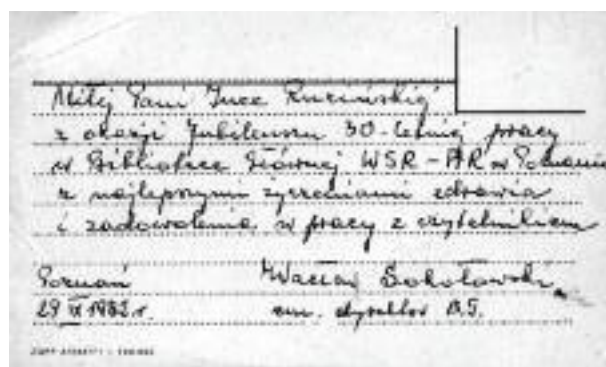 Miłej Pani Ince Rucińskiej
z okazji Jubileuszu 30-letniej pracy
w Bibliotece Głównej WSR-AR w Poznaniu
z najlepszymi życzeniami zdrowia
i zadowolenia w pracy z czytelnikiem
Poznań Wacław Sokołowski
29 IX 1982 r. em. dyrektor B.G.